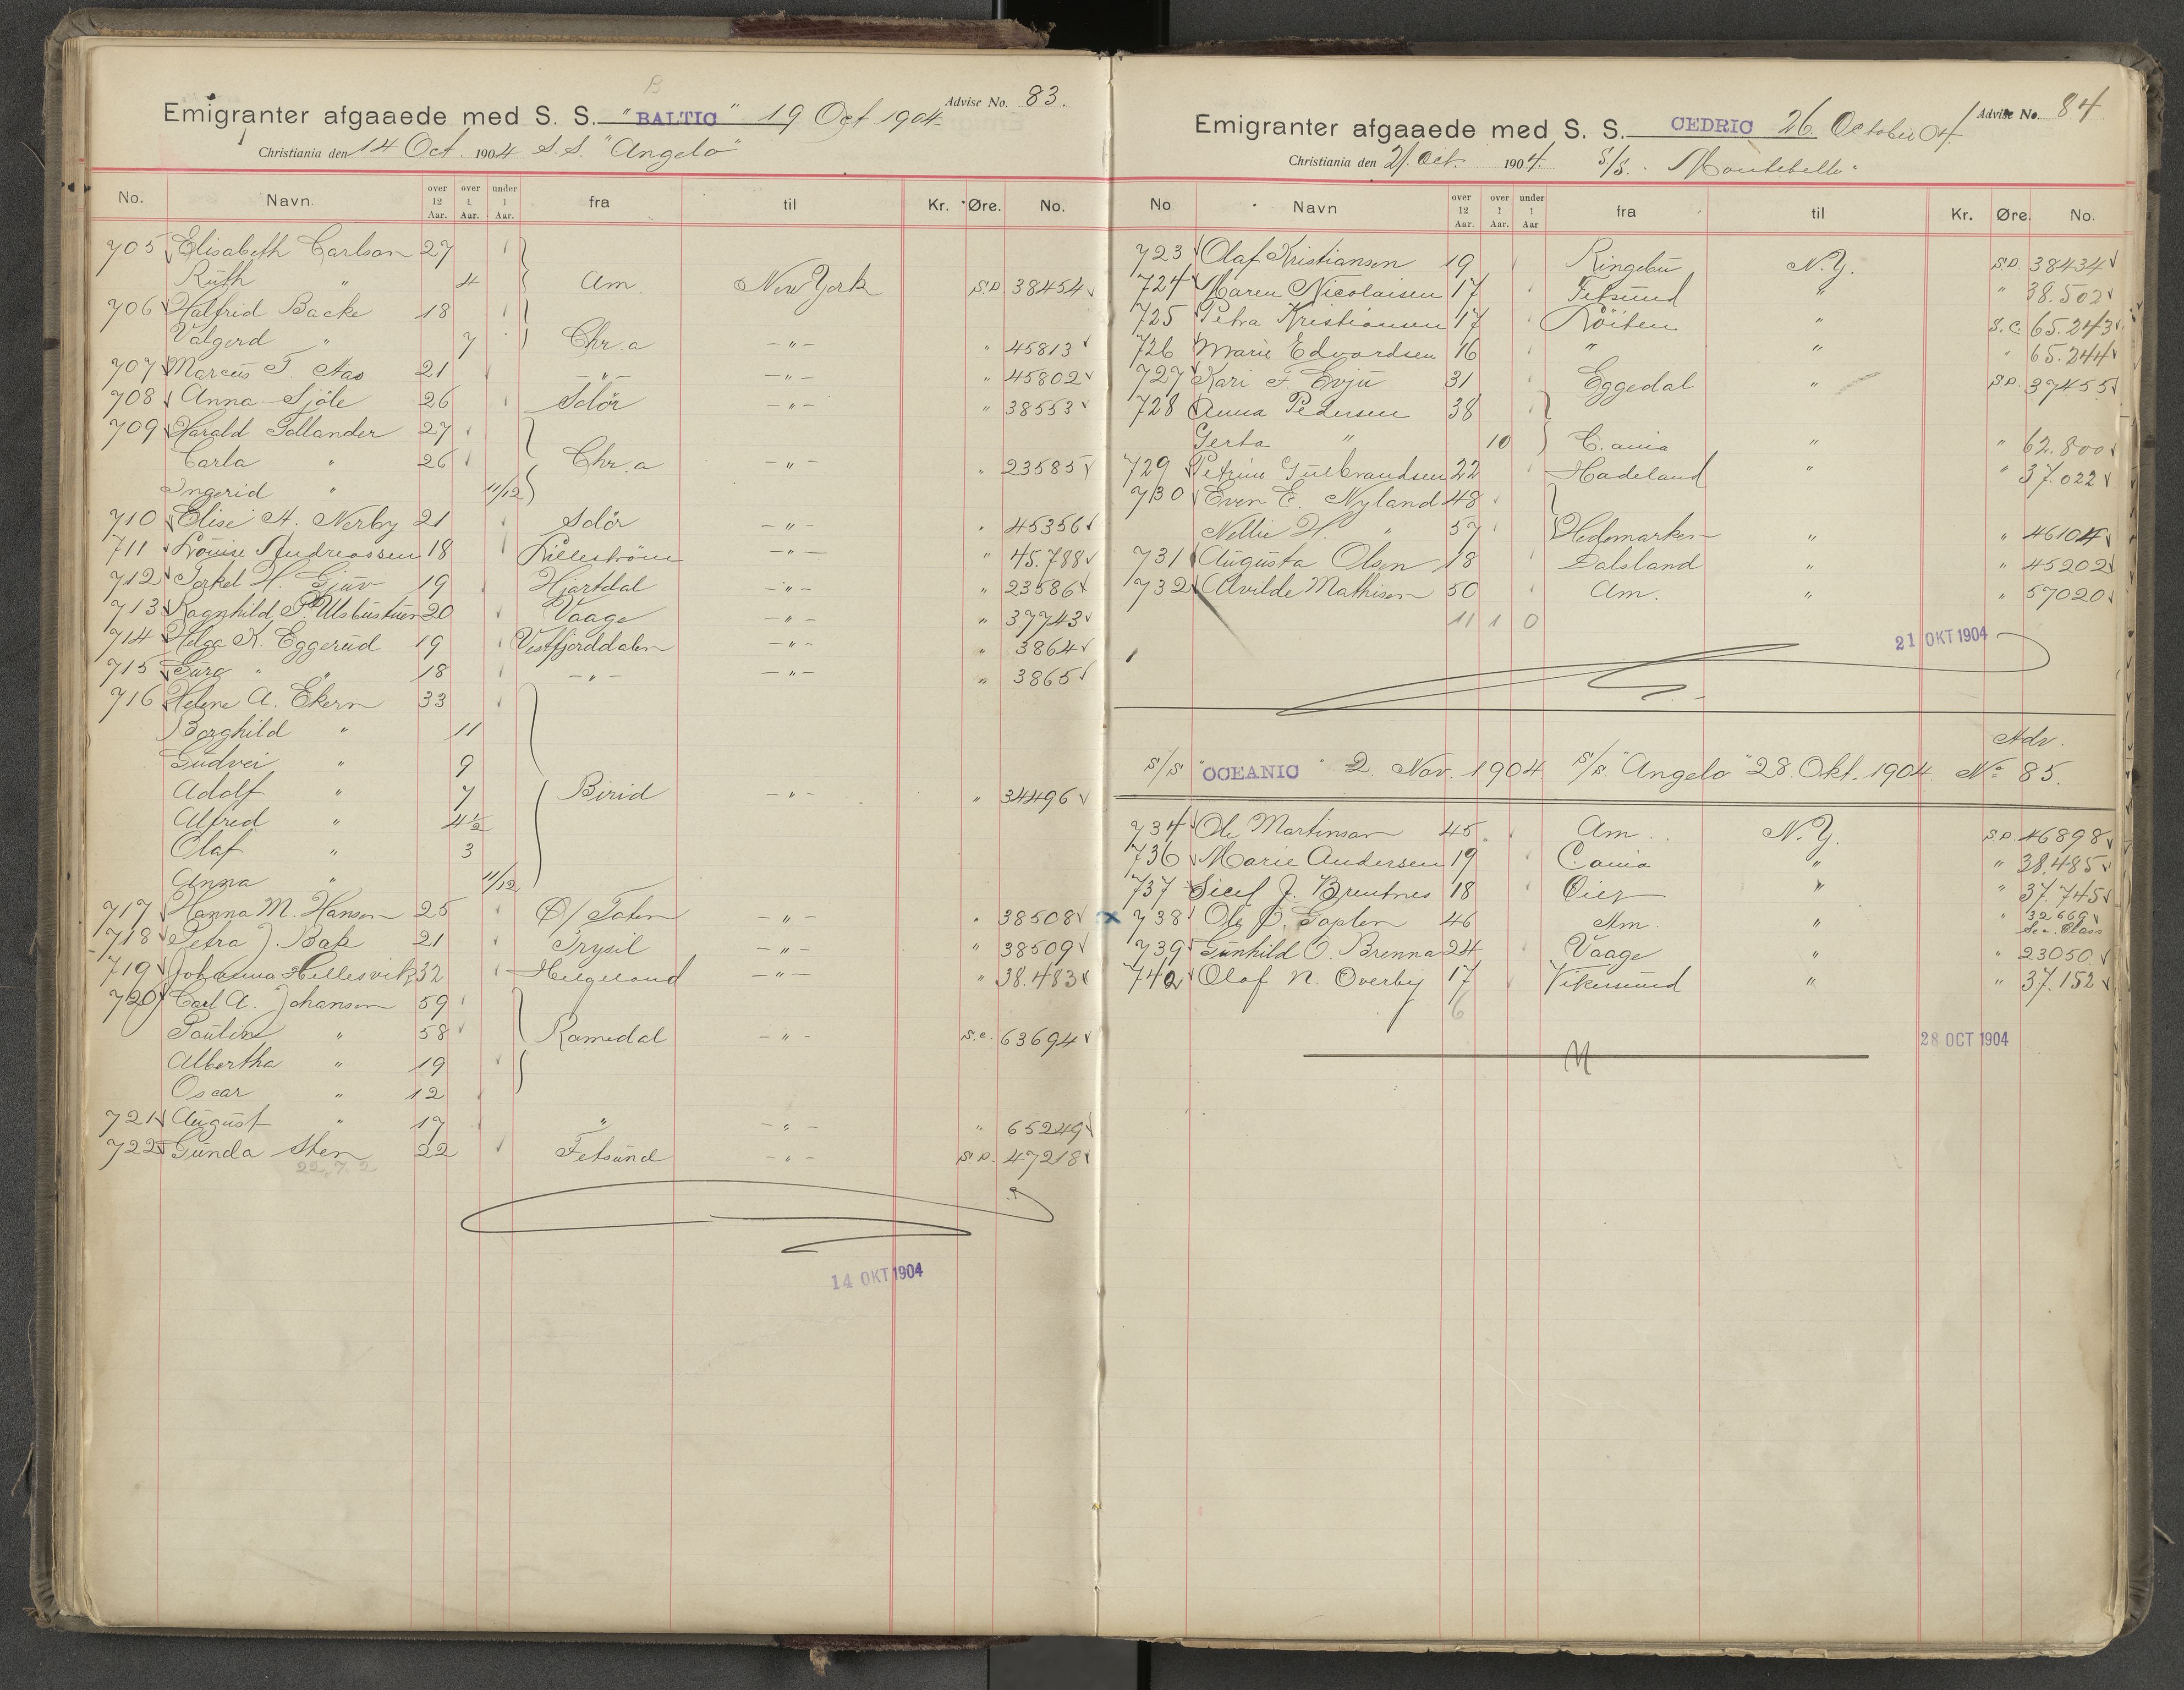 B
Emigranter afgaaede med S. S. "BALTIC" 19 Oct 1904 Advise No. 83.
Christiania den 14 Oct. 1904 S.S. "Angelo"
No. Navn. over 12 Aar. over 1 Aar. under 1 Aar. fra til Kr. Øre. No.
705 Elisabeth Carlson 27
Ruth " 4 Am. New York S.D. 38454
706 Halfrid Backe 18
Valgerd " 7 Chr.a -"- " 45813
707 Marcus T. Aas 21 -"- -"- " 45802
708 Anna Sjöle 26 Solör -"- " 38553
709 Harald Tollander 27
Carla " 26 Chr.a -"- " 23585
Ingerid " 11/12
710 Elise A. Nerby 21 Solör -"- " 45356
711 Lovise Andreassen 18 Lilleström -"- " 45.788
712 Torkel H. Gjuv 19 Hjartdal -"- " 23586
713 Ragnhild P. Ulsbustuen 20 Vaage -"- " 37743
714 Helga K. Eggerud 19 Vestfjorddalen -"- " 3864
715 Guro " " 18 -"- -"- " 3865
716 Helene A. Ekern 33
Borghild " 11
Gudvei " 9
Adolf " 7 Birid -"- " 34496
Alfred " 4½
Olaf " 3
Anna " 11/12
717 Hanna M. Hansen 25 Ø/Toten -"- " 38508
718 Petra J. Bak 21 Trysil -"- " 38509
719 Johanna Hellesvik 32 Helgeland -"- " 38.483
720 Carl A. Johansen 59
Pauline " 58 Ramedal -"- S.C. 63694
Albertha " 19
Oscar " 12
721 August " 17 " -"- " 65249
722 Gunda Sten 22 Fetsund -"- S.D. 47218
22.7.2
14 OKT 1904
Emigranter afgaaede med S. S. CEDRIC 26. October 04. Advise No. 84
Christiania den 21. Oct. 1904. S/S. "Montebello"
No Navn over 12 Aar. over 1 Aar. under 1 Aar fra til Kr. Øre. No.
723 Olaf Kristiansen 19 Ringebu N.Y. S.D. 38434
724 Maren Nicolaisen 17 Fetsund " " 38.502
725 Petra Kristiansen 17 Röiken " S.C. 65.243
726 Marie Edvardsen 16 " " " 65.244
727 Kari F. Evju 31 Eggedal " S.D. 37455
728 Anna Pedersen 38
Gerta " 10 C.ania " " 62.800
729 Petrine Gulbrandsen 22 Hadeland " " 37.022
730 Even E. Nyland 48
Nellie H. " 57 Hedemarken " " 46104
731 Augusta Olsen 18 Dalsland " " 45202
732 Alvilde Mathisen 50 Am. " " 57020
11 1 0
21 OKT 1904
Adv.
S/S "OCEANIC" 2. Nov. 1904 S/S. "Angelo" 28. Okt. 1904 No 85.
734 Ole Martinsan 45 Am. N.Y. S.D. 46898
736 Marie Andersen 19 C.ania " " 38.485
737 Sicel J. Brentnes 18 Öier " " 37.745
x 738 Ole O. Taplen 46 Am. " " 32669
Sec. Class
739 Gunhild O. Brenna 24 Vaage " " 23050.
740 Olaf N. Overby 17 Vikersund " " 37.152
6
28 OCT 1904